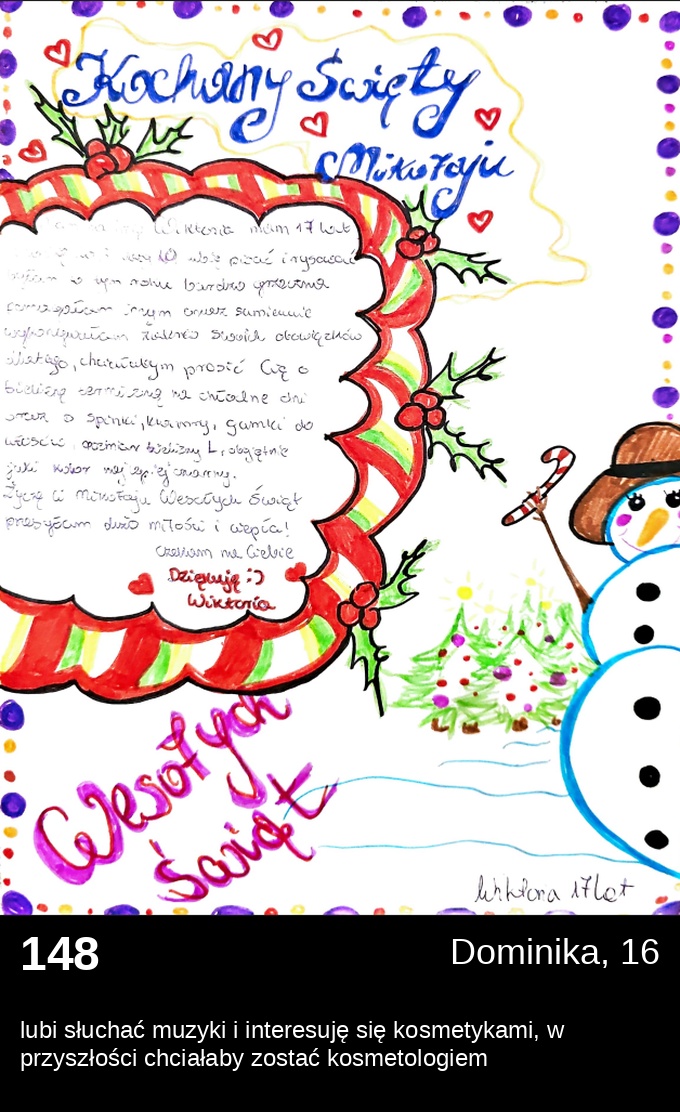 Kochany Święty
Mikołaju
Wiktoria mam 17 lat
lubię pisać i rysować
w tym roku bardzo grzeczna
pomagałam innym oraz sumiennie
swoich obowiązków
dlatego, chciałabym prosić Cię o
bieliznę termiczną na chłodne dni
oraz o spinki, gumki do
włosów, rozmiar bielizny L, obojętnie
jaki kolor najlepiej czarny.
Życzę Ci Mikołaju Wesołych Świąt
przesyłam dużo miłości i ciepła!
czekam na Ciebie
Dziękuję :)
Wiktoria
Wesołych
Świąt
Wiktoria 17 lat
148
Dominika, 16
lubi słuchać muzyki i interesuję się kosmetykami, w
przyszłości chciałaby zostać kosmetologiem